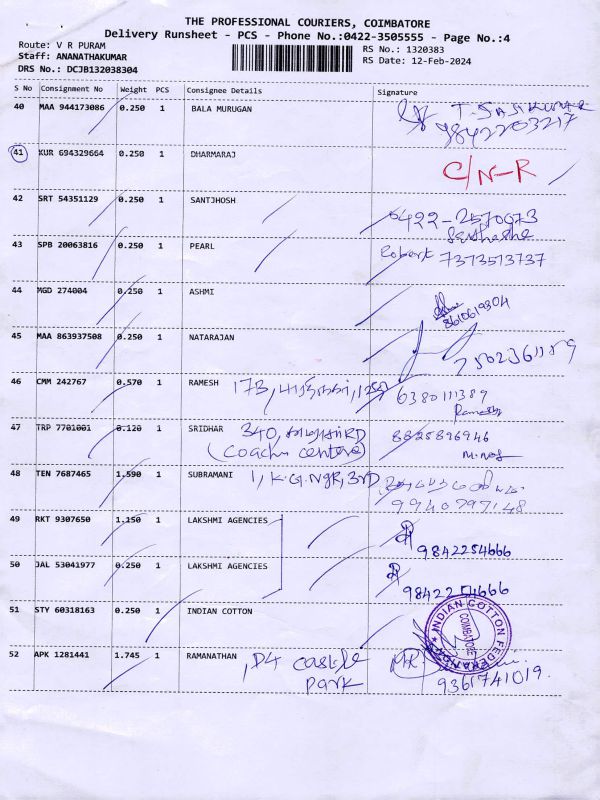 THE PROFESSIONAL COURIERS, COIMBATORE
Delivery Runsheet - PCS - Phone No.:0422-3505555 - Page No.:4
Route: V R PURAM
RS No.: 1320383
Staff: ANANATHAKUMAR
RS Date: 12-Feb-2024
DRS No.: DCJB132038304
S No Consignment No Weight PCS Consignee Details Signature
40 MAA 944173086 0.250 1 BALA MURUGAN T. SASIKUMAR
9842203217
41 KUR 694329664 0.250 1 DHARMARAJ C/N-R
42 SRT 54351129 0.250 1 SANTJHOSH 0422-2570673
43 SPB 20063816 0.250 1 PEARL Robert 7373513737
44 MGD 274004 0.250 1 ASHMI 8610619304
45 MAA 863937508 0.250 1 NATARAJAN 7502361189
46 CMM 242767 0.570 1 RAMESH 173, 6380111389
Ramesh
47 TRP 7701001 0.120 1 SRIDHAR 340, RD 8825896946
(Coachn centere)
48 TEN 7687465 1.590 1 SUBRAMANI 1, K.G. NGR, 3RD
9940797148
49 RKT 9307650 1.150 1 LAKSHMI AGENCIES
9842254666
50 JAL 53041977 0.250 1 LAKSHMI AGENCIES
9842254666
51 STY 60318163 0.250 1 INDIAN COTTON
INDIAN COTTON FEDERATION
COIMBATORE
52 APK 1281441 1.745 1 RAMANATHAN , D4 castle
park 9361741019.